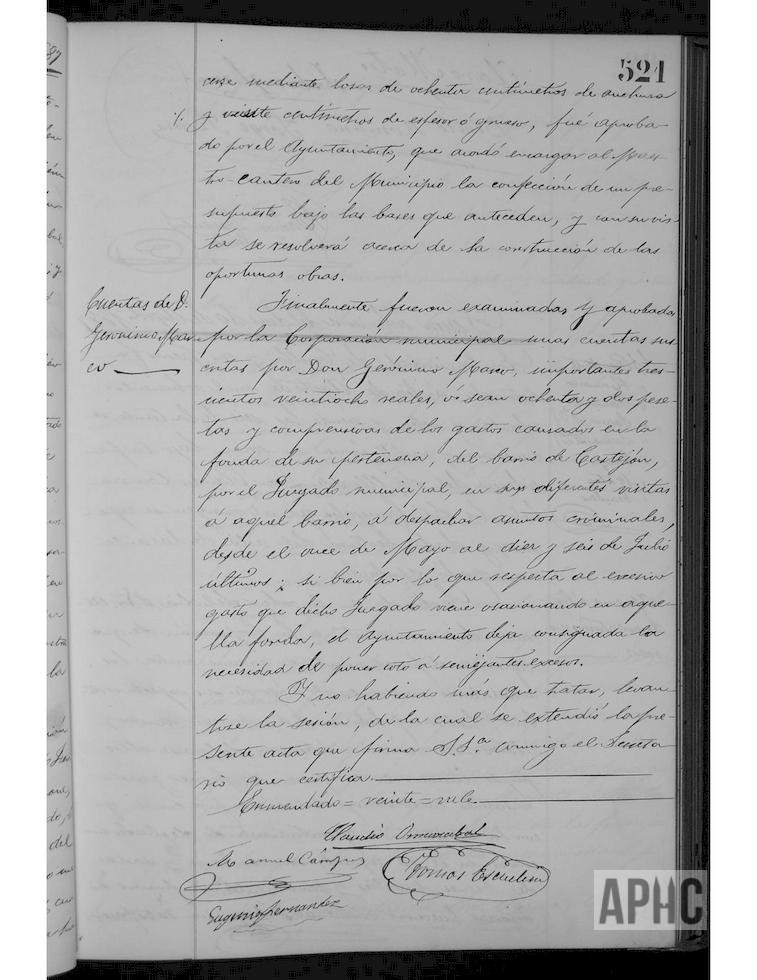 521
cerse mediante losas de ochenta centímetros de anchura
y veinte centímetros de espesor ó grueso, fué aproba-
do por el Ayuntamiento, que acordó encargar al Maes-
tro-cantero del Municipio la confección de un pre-
supuesto bajo las bases que anteceden, y con su vis-
ta se resolverá acerca de la construcción de las
oportunas obras.
Cuentas de D.
Gerónimo Mar-
co
Finalmente fueron examinadas y aprobadas
por la Corporación municipal unas cuentas sus-
critas por Don Gerónimo Marco, importantes tres-
cientos veintiocho reales, ó sean ochenta y dos pese-
tas y comprensivas de los gastos causados en la
fonda de su pertenencia, del barrio de Castejón,
por el Juzgado municipal, en sus diferentes visitas
á aquel barrio, á despachar asuntos criminales,
desde el once de Mayo al diez y seis de Julio
últimos; si bien por lo que respecta al excesivo
gasto que dicho Juzgado viene ocasionando en aque-
lla fonda, el Ayuntamiento deja consignada la
necesidad de poner coto á semejantes excesos.
Y no habiendo más que tratar, levan-
tose la sesión, de la cual se extendió la pre-
sente acta que firma S.Sª. conmigo el Secreta-
rio que certifica.
Enmendado = veinte = vale.
Claudio
Manuel
Tomás
Eugenio Hernandez
APHC